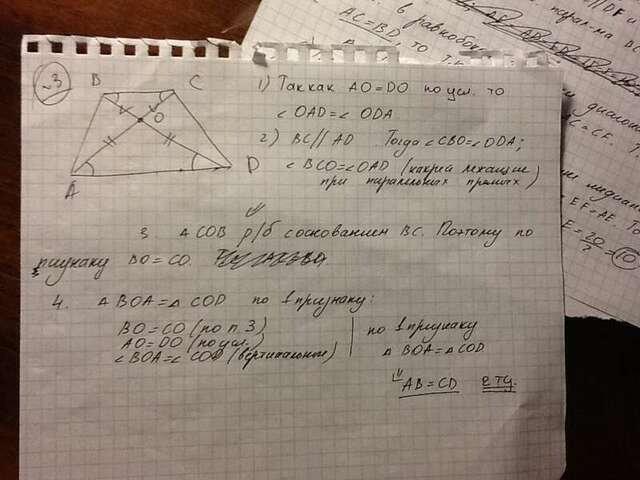 №3
B C
O
A D
1) Так как AO=DO по усл. то
∠OAD=∠ODA
2) BC//AD Тогда ∠CBO=∠ODA;
∠BCO=∠OAD (как лежащие
при паралельных прямых)
3. △COB р/б с основанием BC. Поэтому по
признаку BO=CO.
4. △BOA=△COD по 1 признаку:
BO=CO (по п.3)
AO=DO (по усл.)
∠BOA=∠COD (вертикальные)
по 1 признаку
△BOA=△COD
⇓
AB=CD ч.т.д.
в равнобок
AC=BD, то
EF=AE
E=20/2=10
AC=CE.